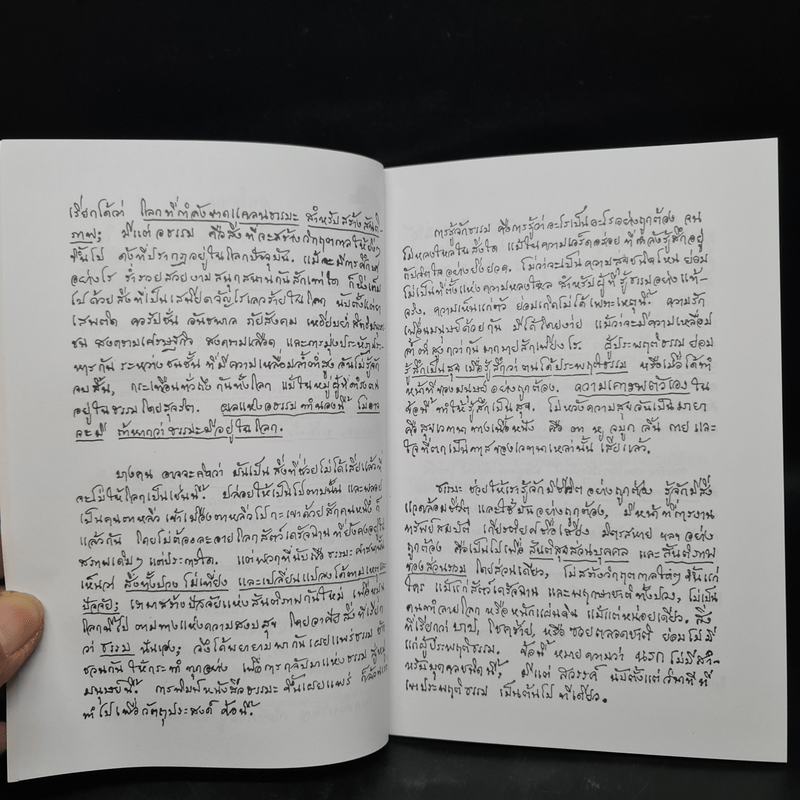 เรียกได้ว่า โลกที่กำลังขาดแคลนธรรมะ สำหรับสร้างสันติ
ภาพ; มีแต่อธรรม คือสิ่งที่จะสร้างวิกฤตกาลให้ยิ่งๆ
ขึ้นไป ดังที่ปรากฏอยู่ในโลกปัจจุบัน. แม้จะมีการศึกษา
อย่างไร ร่ำรวยสวยงามสนุกสนานกันสักเท่าใด ก็มีเต็ม
ไปด้วยสิ่งที่เป็นเสนียดจัญไรเลวร้ายในโลก นับตั้งแต่ยา
เสพติด คอรัปชั่น อันธพาล ภัยสังคม เหยียบย่ำสิทธิมนุษย
ชน สงครามเศรษฐกิจ สงครามเลือด และการมุ่งประหัตประ
หารกัน ระหว่างชนชั้น ที่มีความเหลื่อมล้ำต่ำสูง อันไม่รู้จัก
จบสิ้น, กระเทือนทั่วถึงกันทั้งโลก แม้ในหมู่ผู้ที่ดำรงตน
อยู่ในธรรมโดยสุจริต. ผลแห่งอธรรมทำนองนี้ ไม่อาจ
จะมี ถ้าหากว่าธรรมะมีอยู่ในโลก.
บางคน อาจจะคิดว่า มันเป็นสิ่งที่ช่วยไม่ได้เสียแล้วที่
จะไม่ให้โลกเป็นเช่นนี้. ปล่อยให้เป็นไปตามนั้น และพลอย
เป็นคนตาหลิ่ว เข้าเมืองตาหลิ่วไปกะเขาด้วยสักคนหนึ่ง ก็
แล้วกัน โดยไม่ต้องละอายโลกสัตว์เดรัจฉานที่ยังคงอยู่ใน
สภาพเดิมๆ แต่ประการใด. แต่พวกที่นับถือธรรมะ
เห็นว่า สิ่งทั้งปวง ไม่เที่ยง และเปลี่ยนแปลงได้ตามเหตุตาม
ปัจจัย; เราพาสร้างปัจจัยแห่งสันติภาพกันใหม่ เพื่อหมุน
โลกนี้ไป ตามทางแห่งความสงบสุข โดยอาศัยสิ่งที่เรียก
ว่า ธรรม นั่นเอง; จึงได้พยายามพากันเผยแพร่ธรรม ชัก
ชวนกัน ให้กระทำทุกอย่าง เพื่อการกลับมาแห่งธรรม สู่หมู่
มนุษย์นี้. การพิมพ์หนังสือธรรมะ ขึ้นเผยแพร่ ก็ล้วน
ทำไปเพื่อวัตถุประสงค์ ข้อนี้.
การรู้จักธรรม คือการรู้ว่าอะไรเป็นอะไรอย่างถูกต้อง จน
ไม่หลงใหลในสิ่งใด แม้ในความเอร็ดอร่อยที่กำลังรู้สึกอยู่
กับจิตใจอย่างยิ่งยวด. ไม่ว่าจะเป็นความสุขชนิดไหน ย่อม
ไม่เป็นที่ตั้งแห่งความหลงใหล สำหรับผู้ที่รู้ธรรมอย่างแท้
จริง. ความเห็นแก่ตัว ย่อมเกิดไม่ได้เพราะเหตุนี้. ความรัก
เพื่อนมนุษย์ด้วยกัน มีได้โดยง่าย แม้ว่าจะมีความเหลื่อม
ล้ำต่ำสูงกว่ากันมากมายสักเพียงไร. ผู้ประพฤติธรรม ย่อม
รู้สึกเป็นสุข เมื่อรู้สึกว่าตนได้ประพฤติธรรม หรือเมื่อได้ทำ
หน้าที่ของมนุษย์อย่างถูกต้อง. ความเคารพตัวเองใน
ข้อนี้ ทำให้รู้สึกเป็นสุข. ไม่หวังความสุขอันเป็นมายา
คือสุขเวทนาทางเนื้อหนัง คือ ตา หู จมูก ลิ้น กาย และ
ใจที่ตกเป็นทาสของเวทนาเหล่านั้น เสียแล้ว.
ธรรมะ ช่วยให้เรารู้จักมีชีวิตอย่างถูกต้อง รู้จักมีสิ่ง
แวดล้อมชีวิต และใช้มันอย่างถูกต้อง, มีหน้าที่การงาน
ทรัพย์สมบัติ เกียรติยศชื่อเสียง มิตรสหาย ฯลฯ อย่าง
ถูกต้อง คือเป็นไปเพื่อ สันติสุขส่วนบุคคล และสันติภาพ
ของส่วนรวม โดยส่วนเดียว, ไม่สร้างวิกฤตกาลใดๆ ขึ้นแก่
ใคร แม้แก่สัตว์เดรัจฉาน และพฤกษาชาติทั้งปวง, ไม่เป็น
คนทำลายโลก หรือหนักแผ่นดิน แม้แต่หน่อยเดียว. สิ่ง
ที่เรียกว่า บาป, โชคร้าย, หรือ ซวยตลอดชาติ ย่อมไม่มี
แก่ผู้ประพฤติธรรม. ข้อนี้ หมายความว่า นรก ไม่มีสำ
หรับบุคคลชนิดนี้, มีแต่ สวรรค์ นับตั้งแต่วินาทีที่
เขาประพฤติธรรม เป็นต้นไป ทีเดียว.